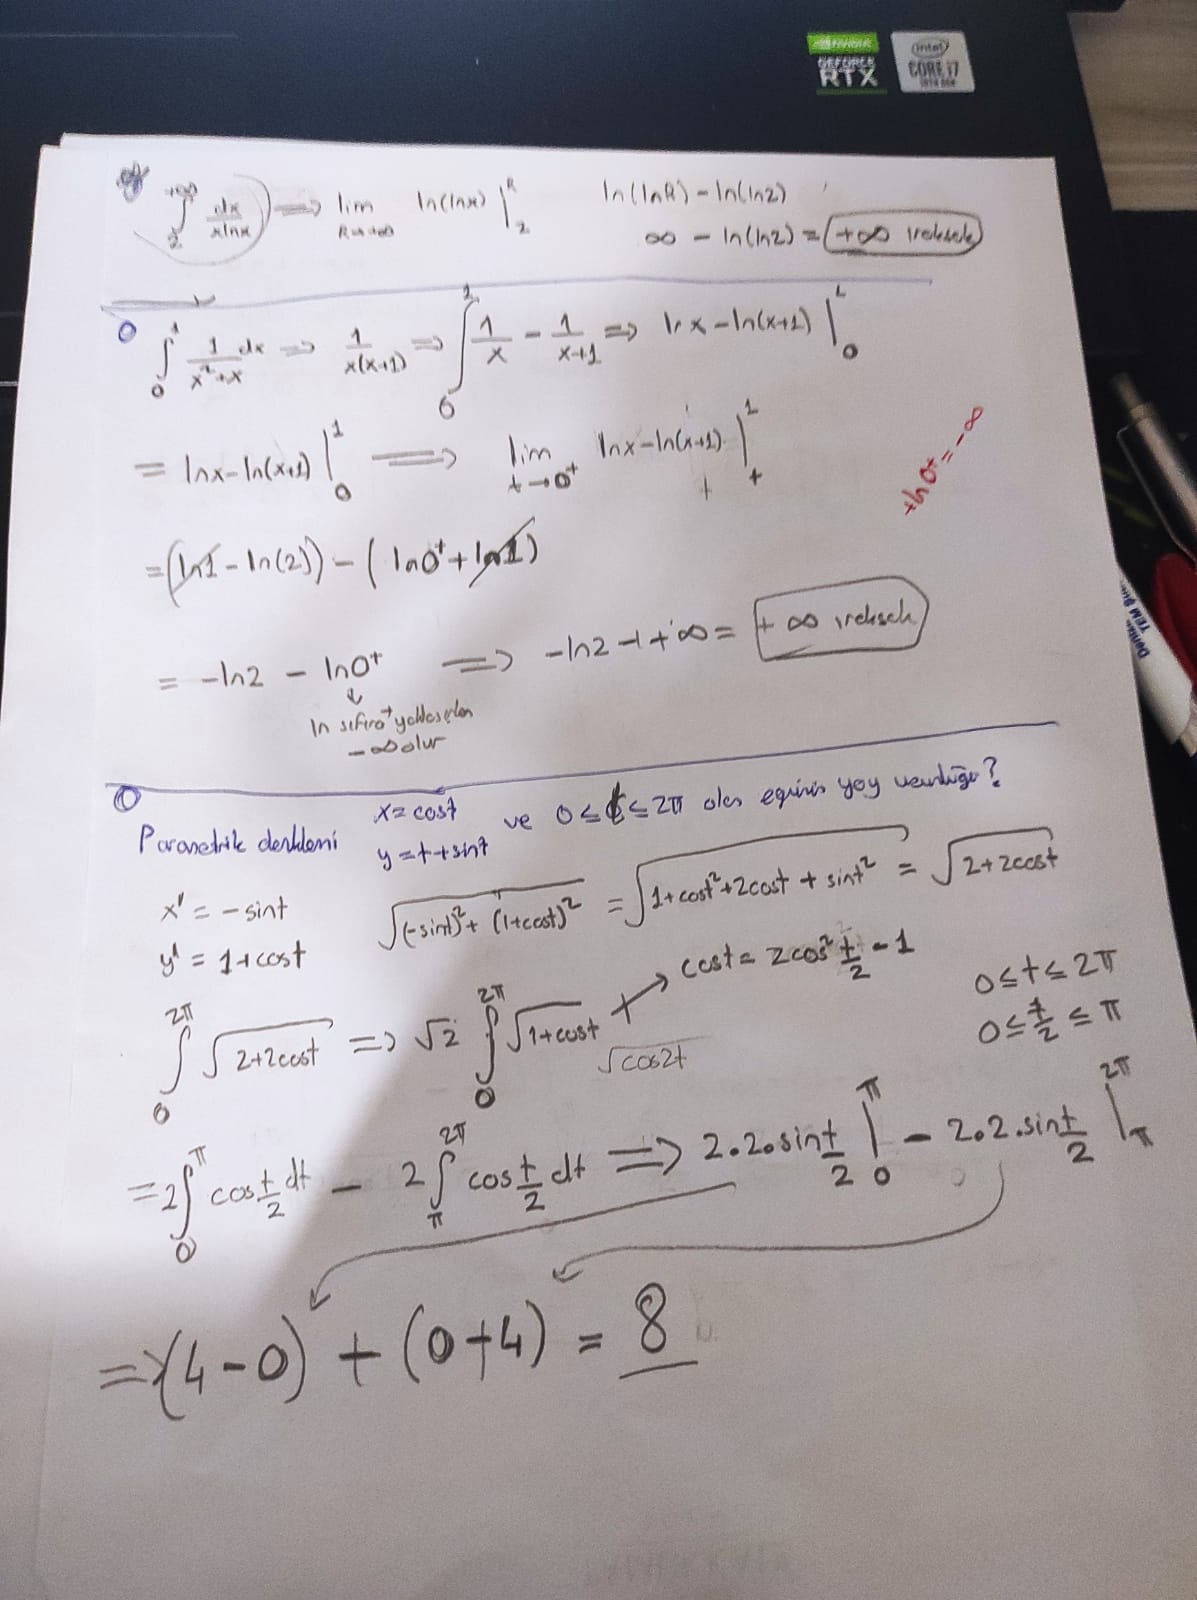 NVIDIA
GEFORCE
RTX
intel
CORE i7
10TH GEN
∫₂^{+∞} dx/(xlnx) ⟹ lim R→+∞ ln(lnx) |₂^R ln(lnR) - ln(ln2)
∞ - ln(ln2) = +∞ ıraksak
∫₀^1 1/(x²+x) dx ⟹ 1/(x(x+1)) ⟹ ∫₀^1 1/x - 1/(x+1) ⟹ lnx - ln(x+1) |₀^1
= lnx - ln(x+1) |₀^1 ⟹ lim t→0⁺ lnx - ln(x+1) |_t^1
+ln0⁺ = -∞
= (ln1 - ln(2)) - (ln0⁺ + ln1)
= -ln2 - ln0⁺ ⟹ -ln2 + ∞ = +∞ ıraksak
ln sıfıra⁺ yaklaşırken
-∞ olur
Parametrik denklemi x = cost
y = t+sint ve 0 ≤ t ≤ 2π olan eğrinin yay uzunluğu?
x' = -sint
y' = 1+cost
√((-sint)² + (1+cost)²) = √(1+cost²+2cost+sint²) = √(2+2cost)
cost = 2cos² t/2 - 1
0≤t≤2π
0≤t/2≤π
∫₀^{2π} √(2+2cost) ⟹ √2 ∫₀^{2π} √(1+cost)
√cos2t
= 2∫₀^π cos t/2 dt - 2∫_π^{2π} cos t/2 dt ⟹ 2.2.sin t/2 |₀^π - 2.2.sin t/2 |_π^{2π}
= (4-0) + (0+4) = 8